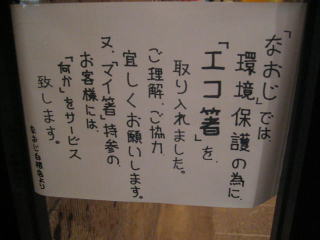 「なおじ」では
環境保護の為に、
「エコ箸」を、
取り入れました。
ご理解、ご協力
宜しくお願いします。
又、「マイ箸」持参の、
お客様には、
「何か」をサービス
致します。